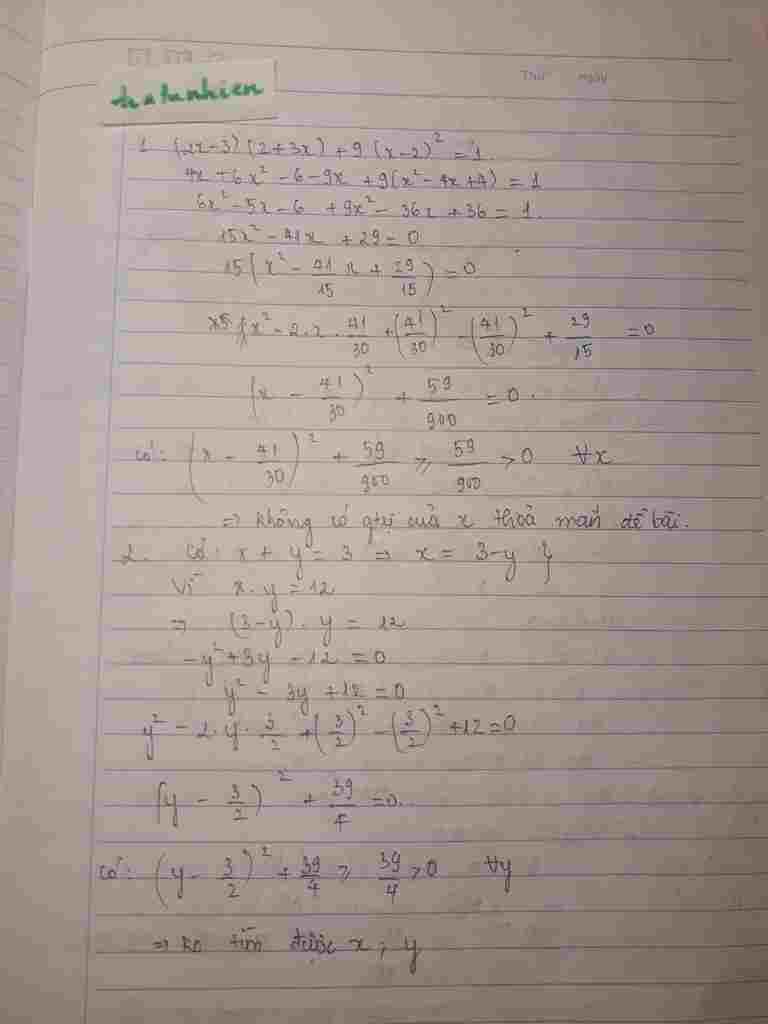 Thứ ngày
hatunhien
1 (2x-3)(2+3x)+9(x-2)² = 1.
4x+6x²-6-9x+9(x²-4x+4) = 1
6x²-5x-6+9x²-36x+36 = 1.
15x²-41x+29=0
15(x²-41/15x+29/15)=0
15(x²-2.x.41/30+(41/30)²-(41/30)²+29/15=0
(x-41/30)²+59/900=0.
Có: (x-41/30)²+59/900 ⩾ 59/900 >0 ∀x
=> không có gtrị của x thoả mãn đề bài.
2. Có: x+y=3 => x=3-y }
Vì x.y=12
=> (3-y).y=12
-y²+3y-12=0
y²-3y+12=0
y²-2.y.3/2+(3/2)²-(3/2)²+12=0
(y-3/2)²+39/4=0.
Có: (y-3/2)²+39/4 ⩾ 39/4 >0 ∀y
=> ko tìm được x, y